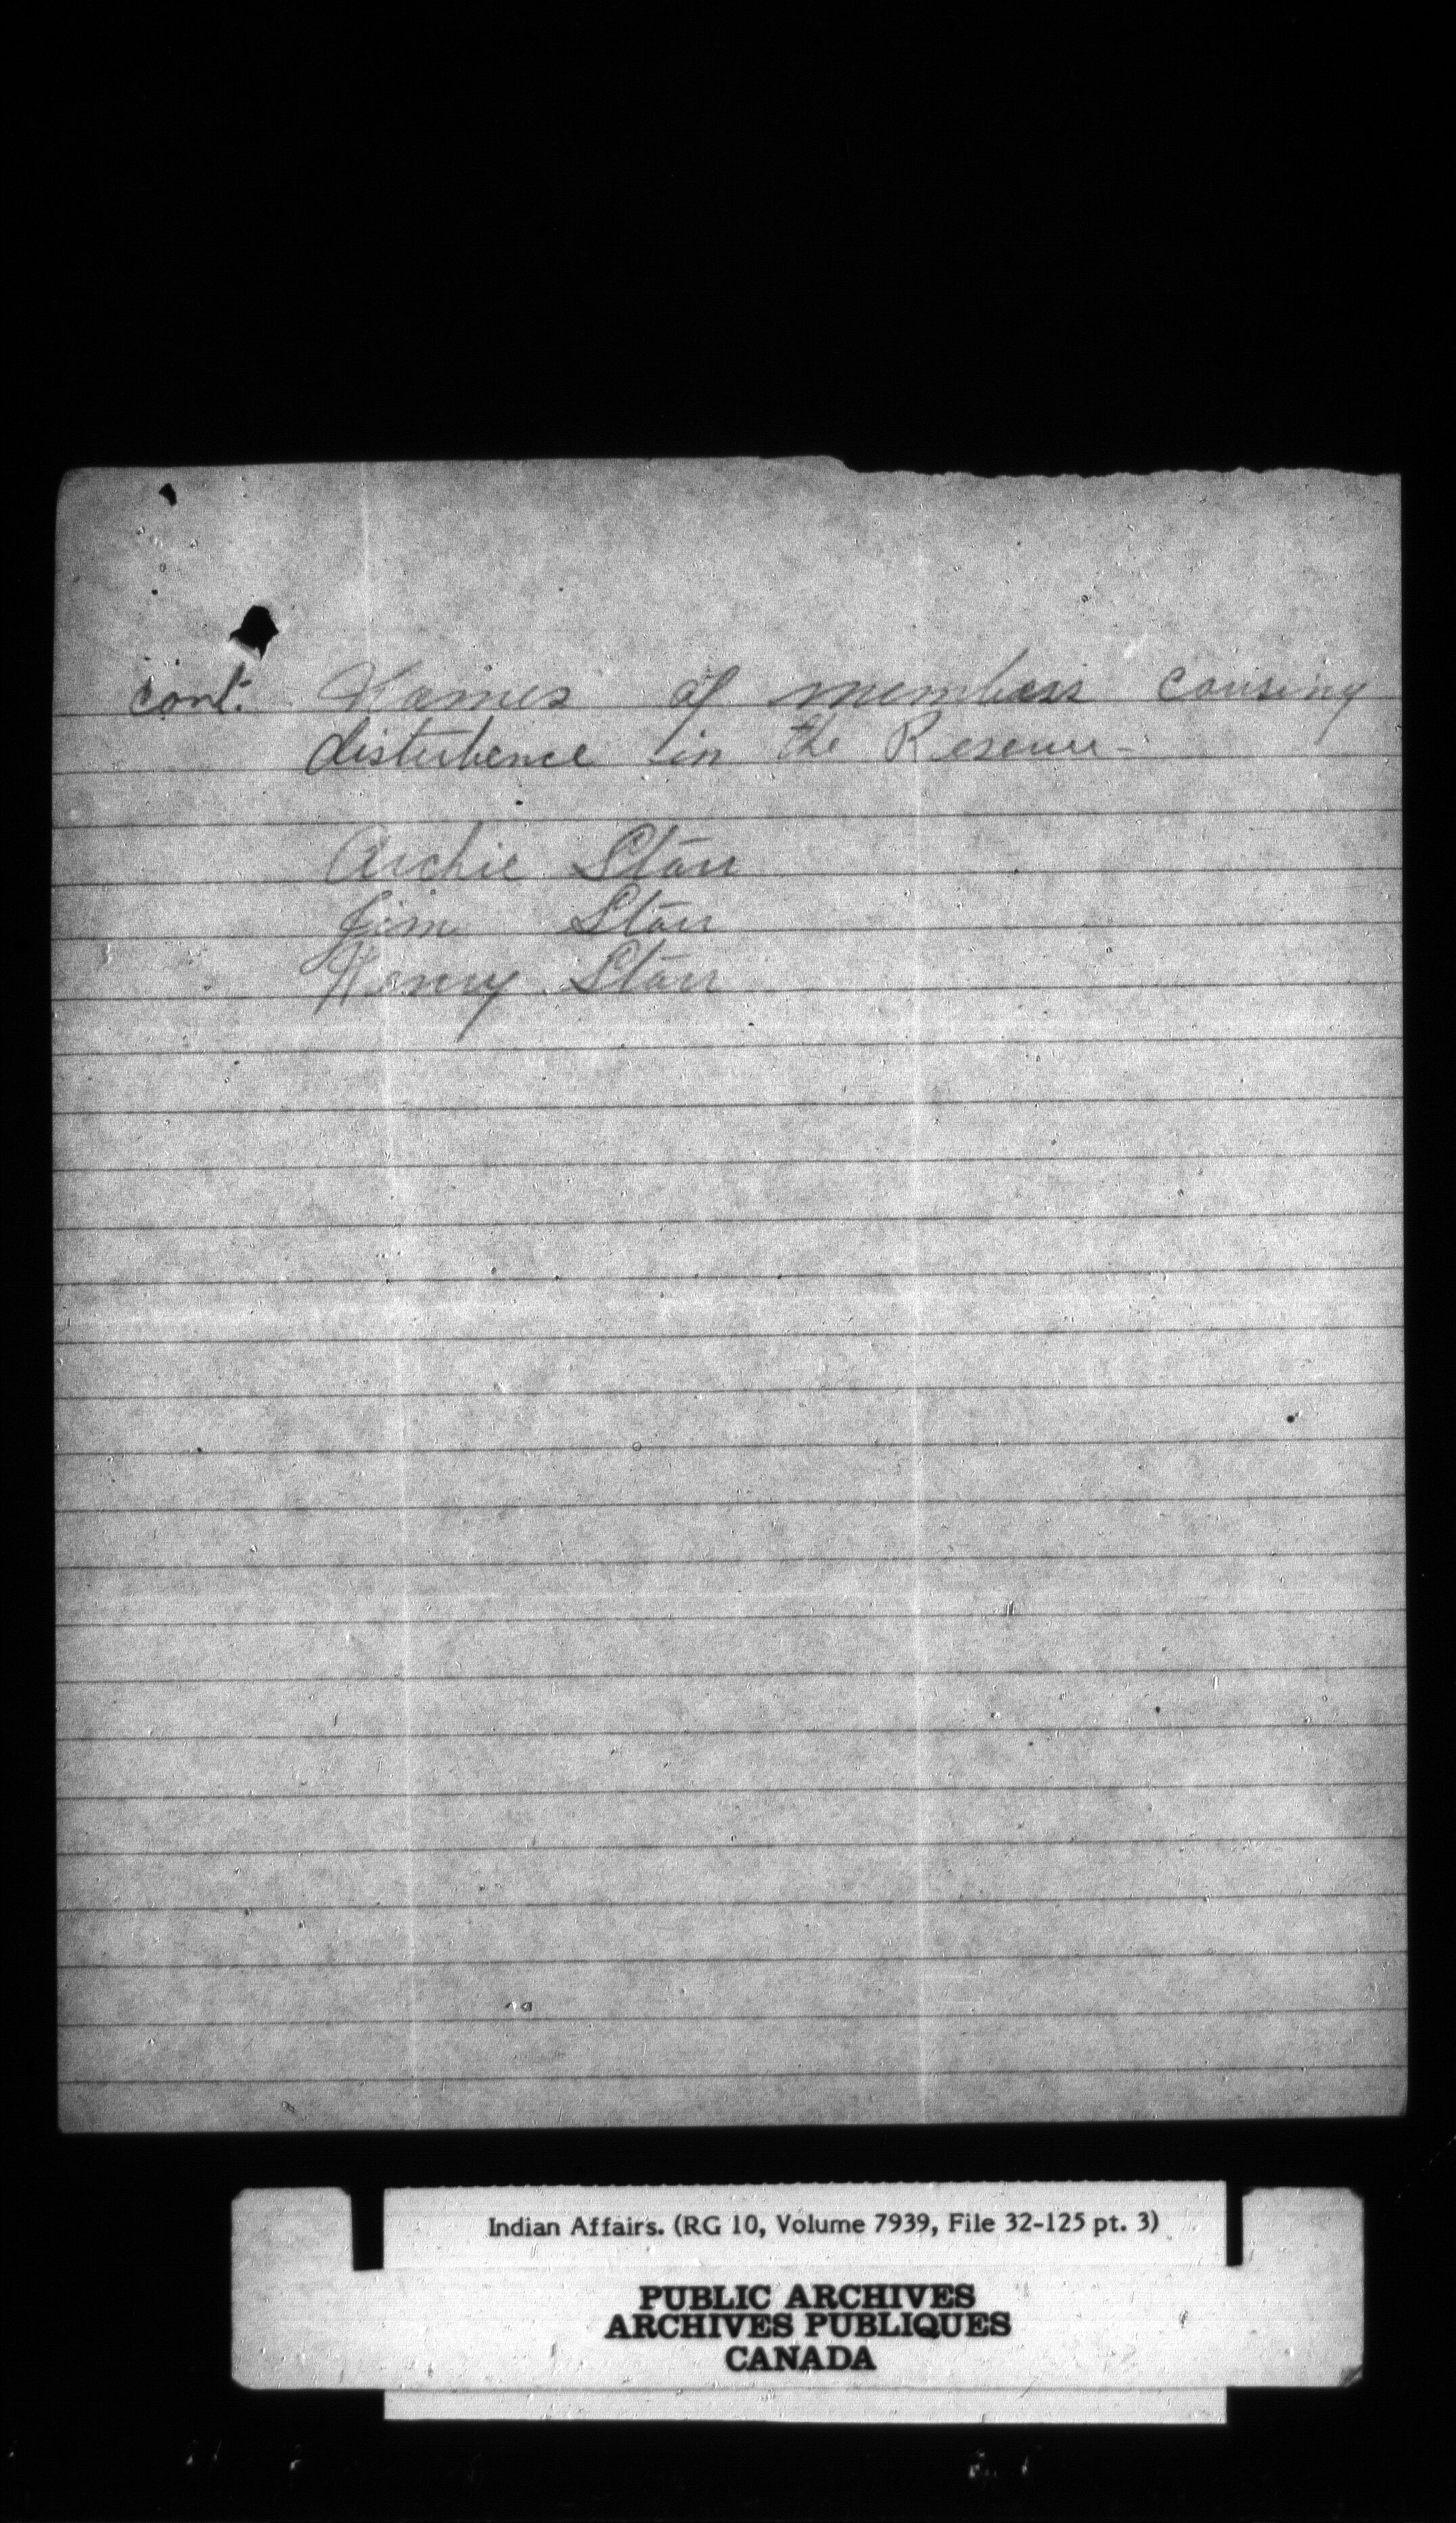 cont. Names of members causing
disturbence in the Reserve -
Archie Starr
Jim Starr
Henry Starr
Indian Affairs. (RG 10, Volume 7939, File 32-125 pt. 3)
PUBLIC ARCHIVES
ARCHIVES PUBLIQUES
CANADA